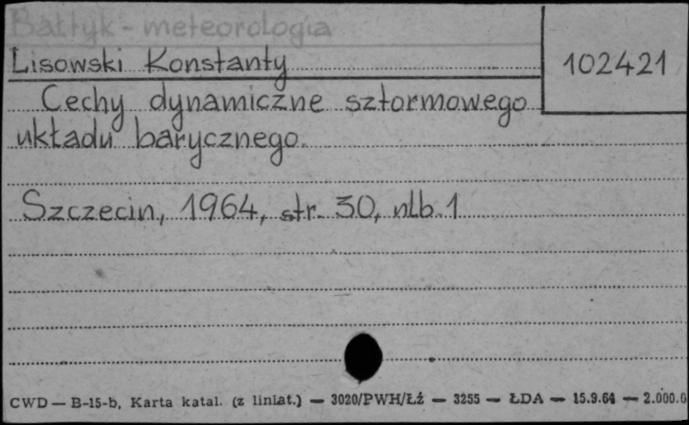 Bałtyk - meteorologia
Lisowski Konstanty
102421
Cechy dynamiczne sztormowego
układu barycznego.
Szczecin, 1964, str. 30, nlb. 1
CWD — B-15-b, Karta katal. (z liniat.) — 3020/PWH/Łż — 3255 — ŁDA — 15.9.64 — 2.000.0